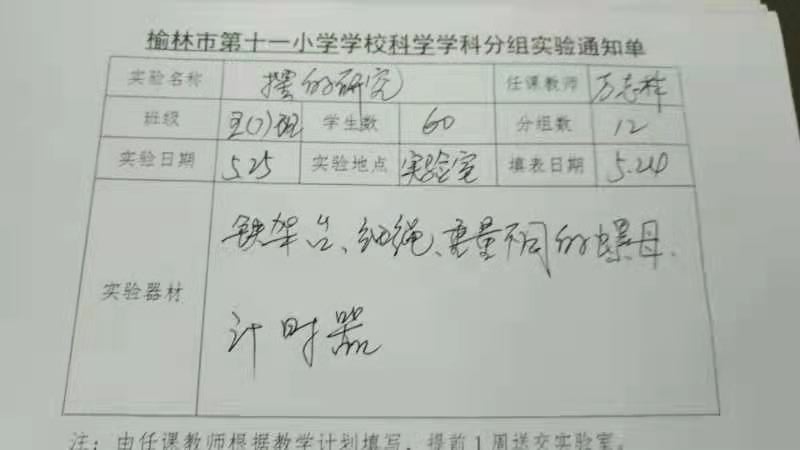 榆林市第十一小学学校科学学科分组实验通知单
实验名称 摆的研究 任课教师 万志祥
班级 五(1)班 学生数 60 分组数 12
实验日期 5.25 实验地点 实验室 填表日期 5.24
实验器材 铁架台、细绳、重量不同的螺母、
计时器
注：由任课教师根据教学计划填写，提前1周送交实验室。